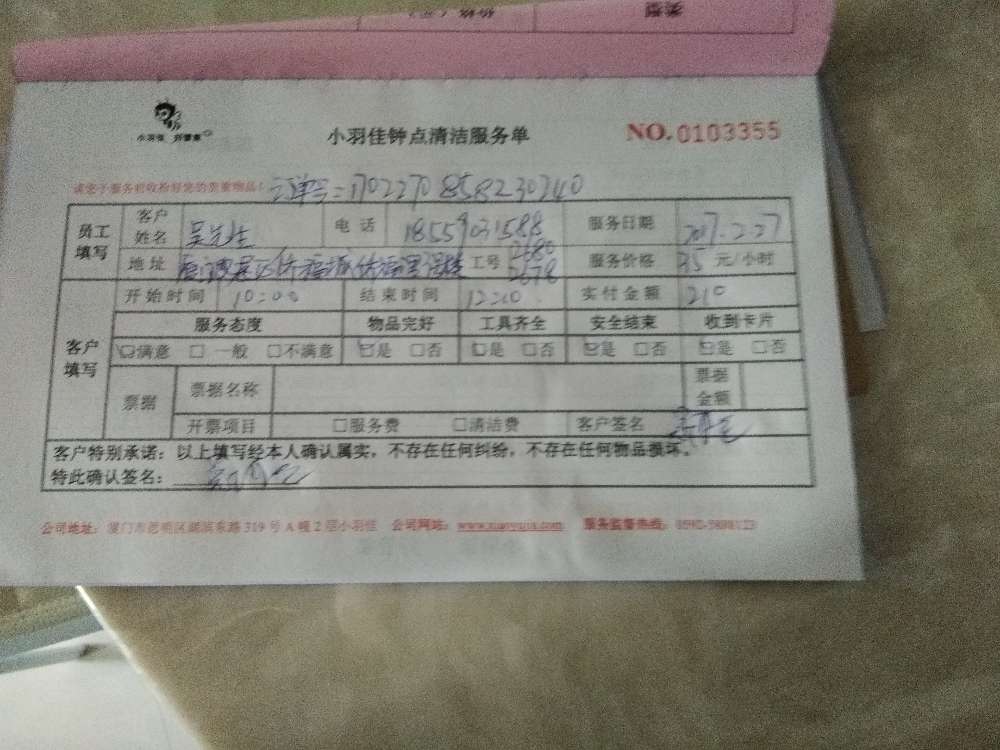 类型
价格
小羽佳
小羽佳钟点清洁服务单
NO. 0103355
请您于服务前收拾好您的贵重物品！ 订单号=1702270858230740
员工填写 客户姓名 吴先生 电话 18559031588 服务日期 2017.2.27
地址 工号 2680 2678 服务价格 35 元/小时
客户填写 开始时间 10:00 结束时间 12:10 实付金额 210
服务态度 物品完好 工具齐全 安全结束 收到卡片
☑满意 □一般 □不满意 ☑是 □否 ☑是 □否 ☑是 □否 ☑是 □否
票据 票据名称 票据金额
开票项目 □服务费 □清洁费 客户签名
客户特别承诺：以上填写经本人确认属实，不存在任何纠纷，不存在任何物品损坏。
特此确认签名：
公司地址：厦门市思明区湖滨东路 319 号 A 幢 2 层小羽佳 公司网站：www.xiaoyujia.com 服务监督热线：